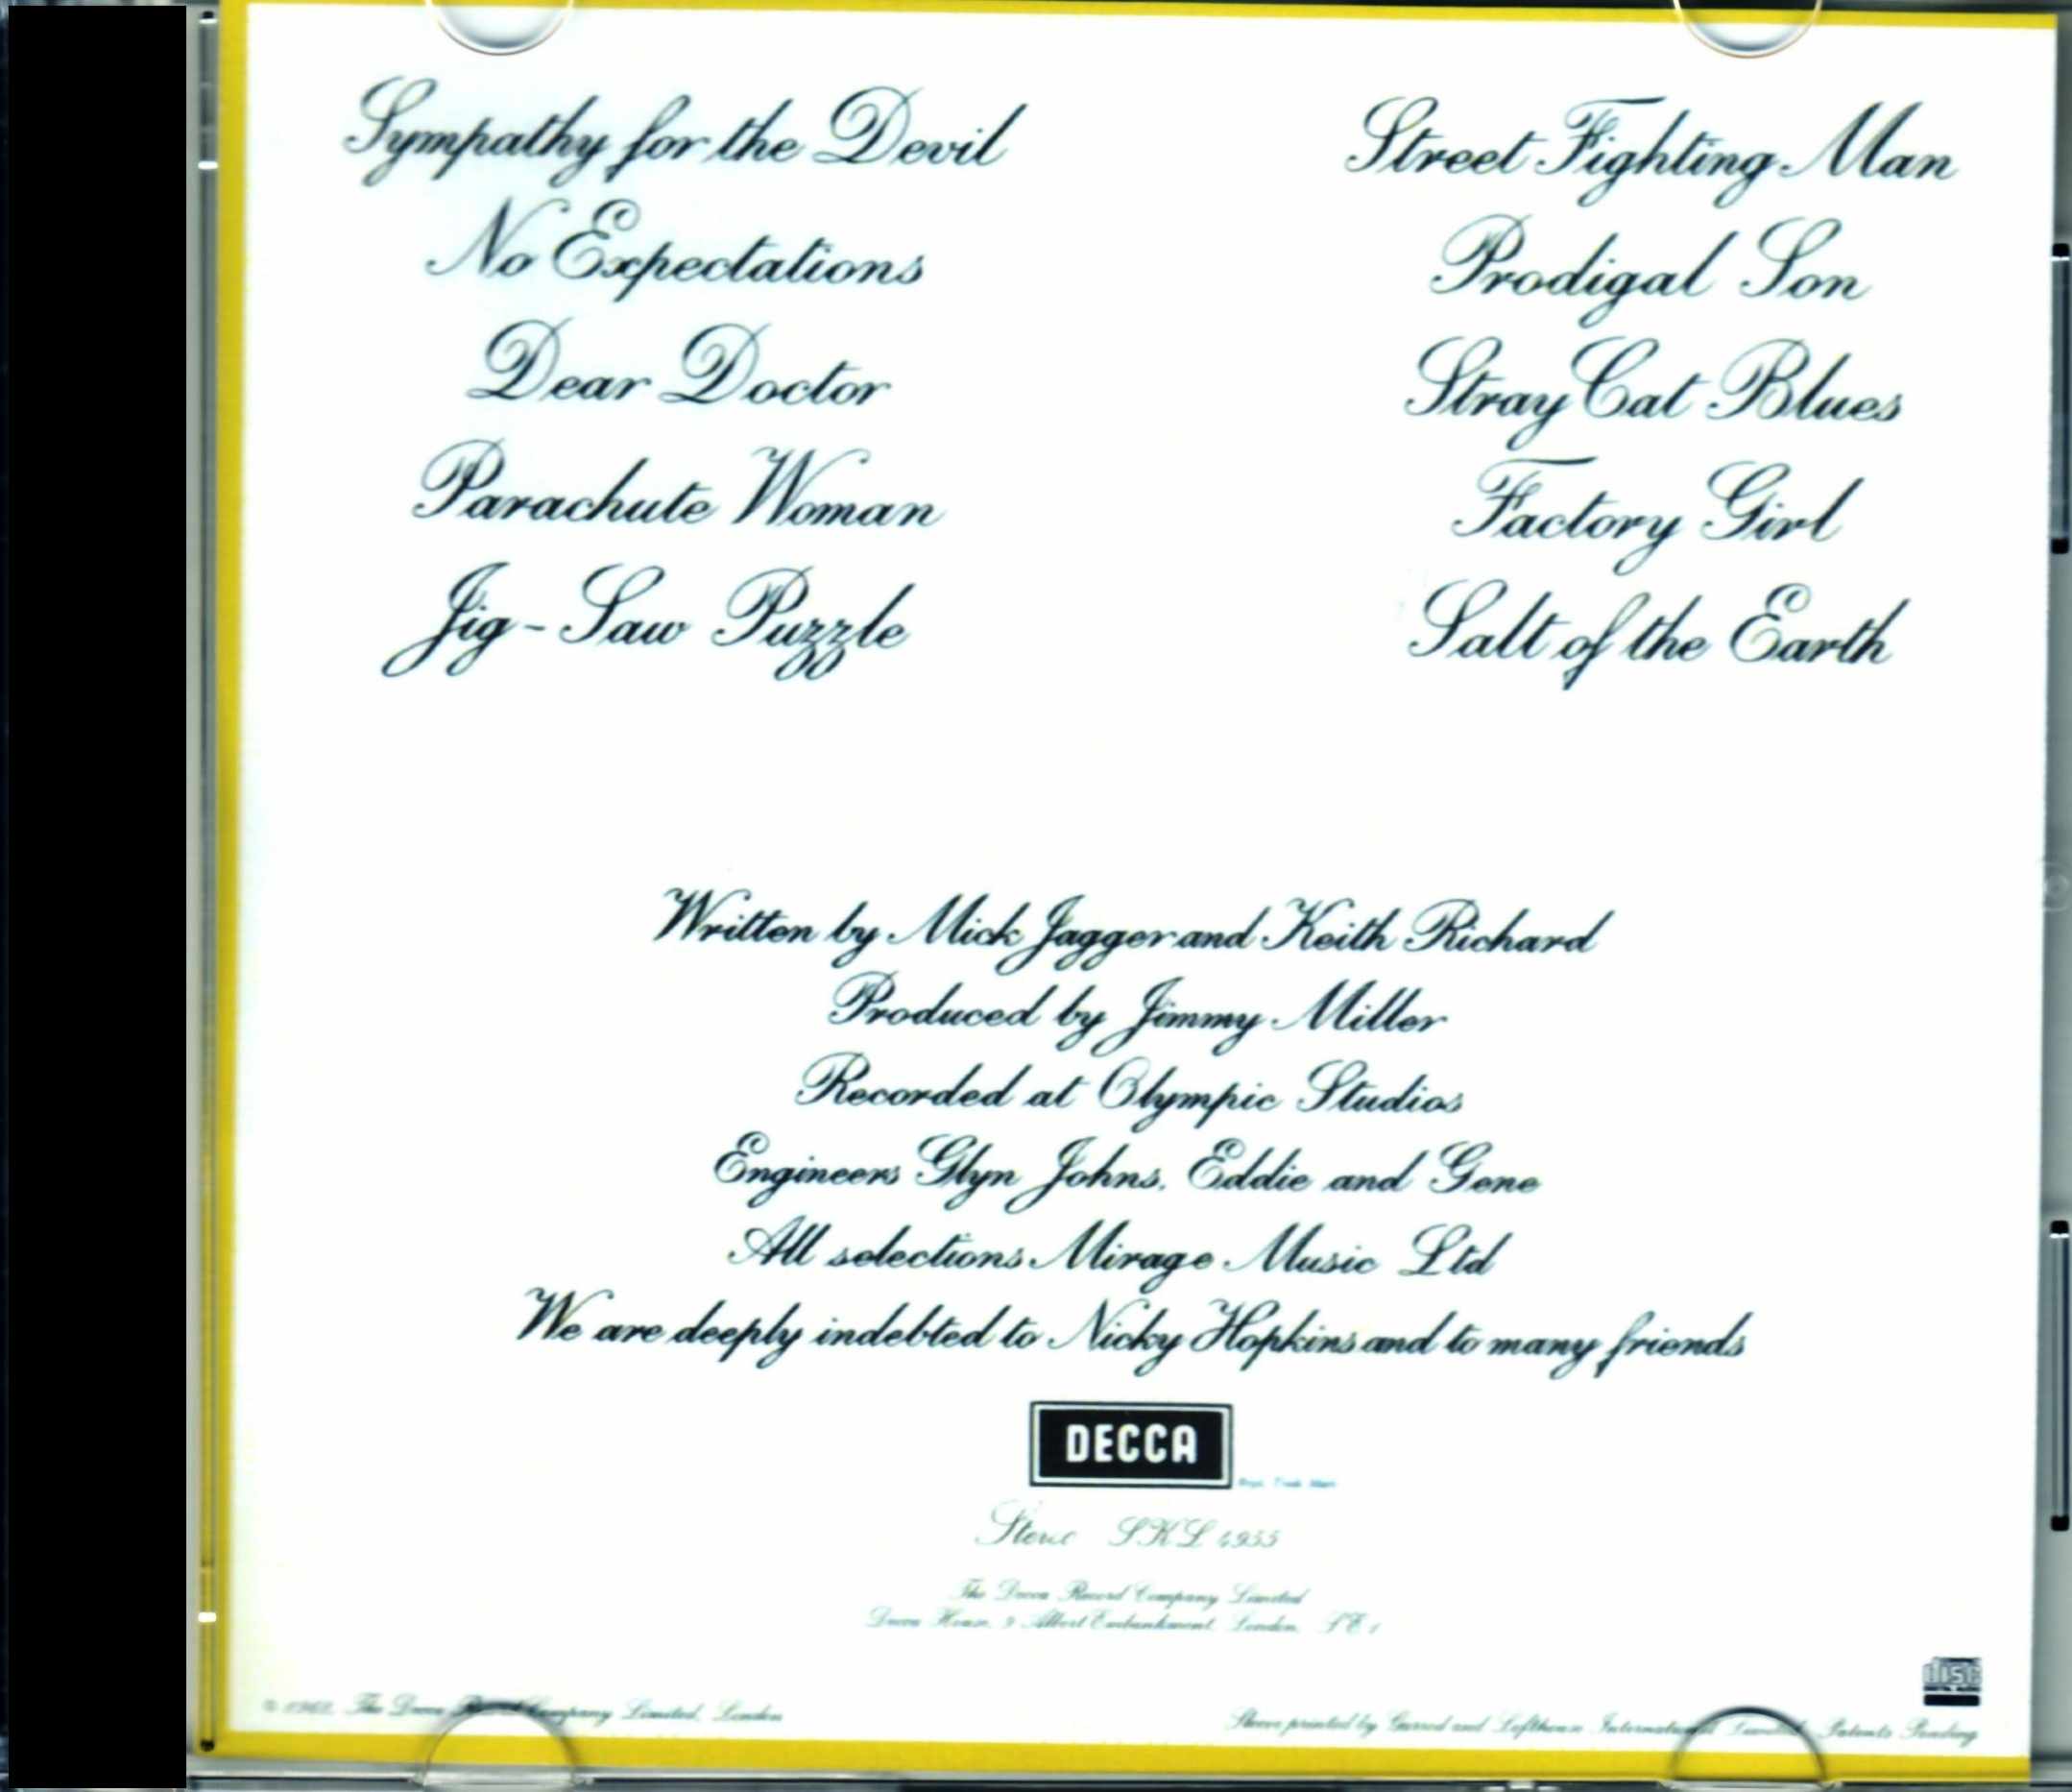 Sympathy for the Devil
No Expectations
Dear Doctor
Parachute Woman
Jig-Saw Puzzle
Street Fighting Man
Prodigal Son
Stray Cat Blues
Factory Girl
Salt of the Earth
Written by Mick Jagger and Keith Richard
Produced by Jimmy Miller
Recorded at Olympic Studios
Engineers Glyn Johns, Eddie and Gene
All selections Mirage Music Ltd
We are deeply indebted to Nicky Hopkins and to many friends
DECCA
Regd. Trade Mark
Stereo SKL 4955
The Decca Record Company Limited
Decca House, 9 Albert Embankment, London, SE1
© 1968, The Decca Record Company Limited, London
disc
Sleeve printed by Garrod and Lofthouse International Limited Patents Pending